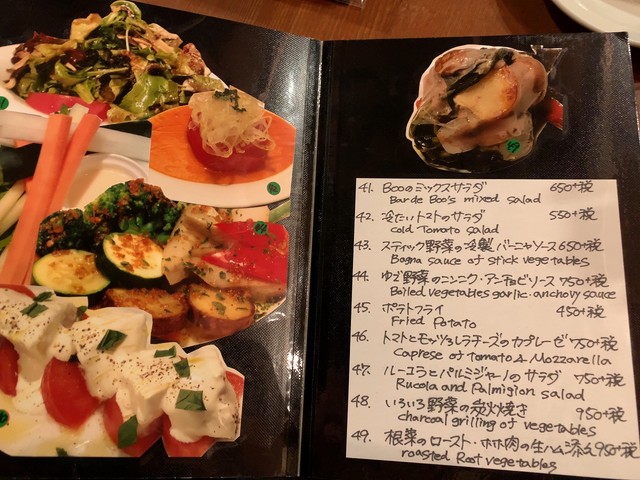 41. Booのミックスサラダ 650+税
Bar de Boo's mixed salad
42. 冷たいトマトのサラダ 550+税
cold Tomato salad
43. スティック野菜の冷製バーニャソース 650+税
Bagna sauce of stick vegetables
44. ゆで野菜のニンニク・アンチョビソース 750+税
Boiled vegetables garlic・anchovy sauce
45. ポテトフライ 450+税
Fried Potato
46. トマトとモッツァレラチーズのカプレーゼ 750+税
Caprese of tomato & Mozzarella
47. ルーコラとパルミジャーノのサラダ 750+税
Rucola and Palmigian salad
48. いろいろ野菜の炭火焼き 950+税
charcoal grilling of vegetables
49. 根菜のロースト・ホホ肉の生ハム添え 950+税
roasted Root vegetables